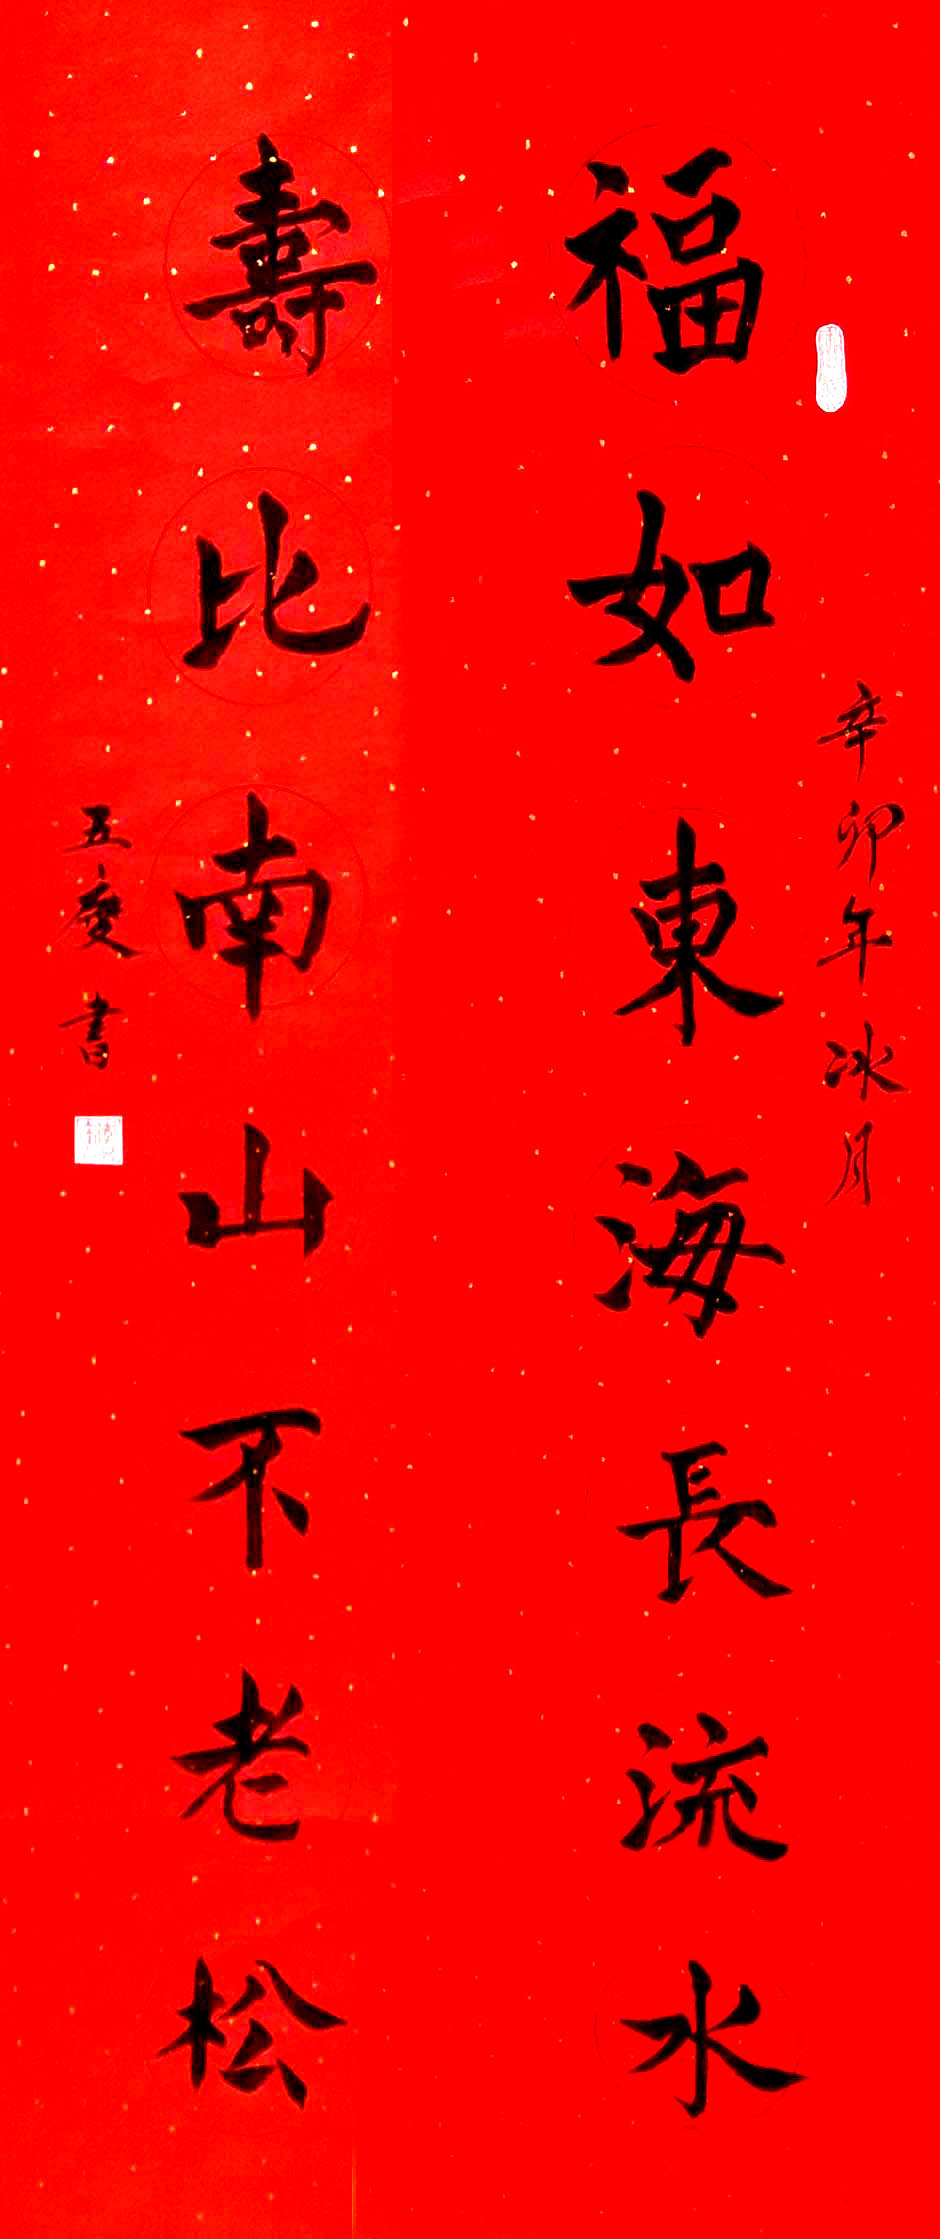 辛卯年冰月
福如東海長流水
壽比南山不老松
五慶書